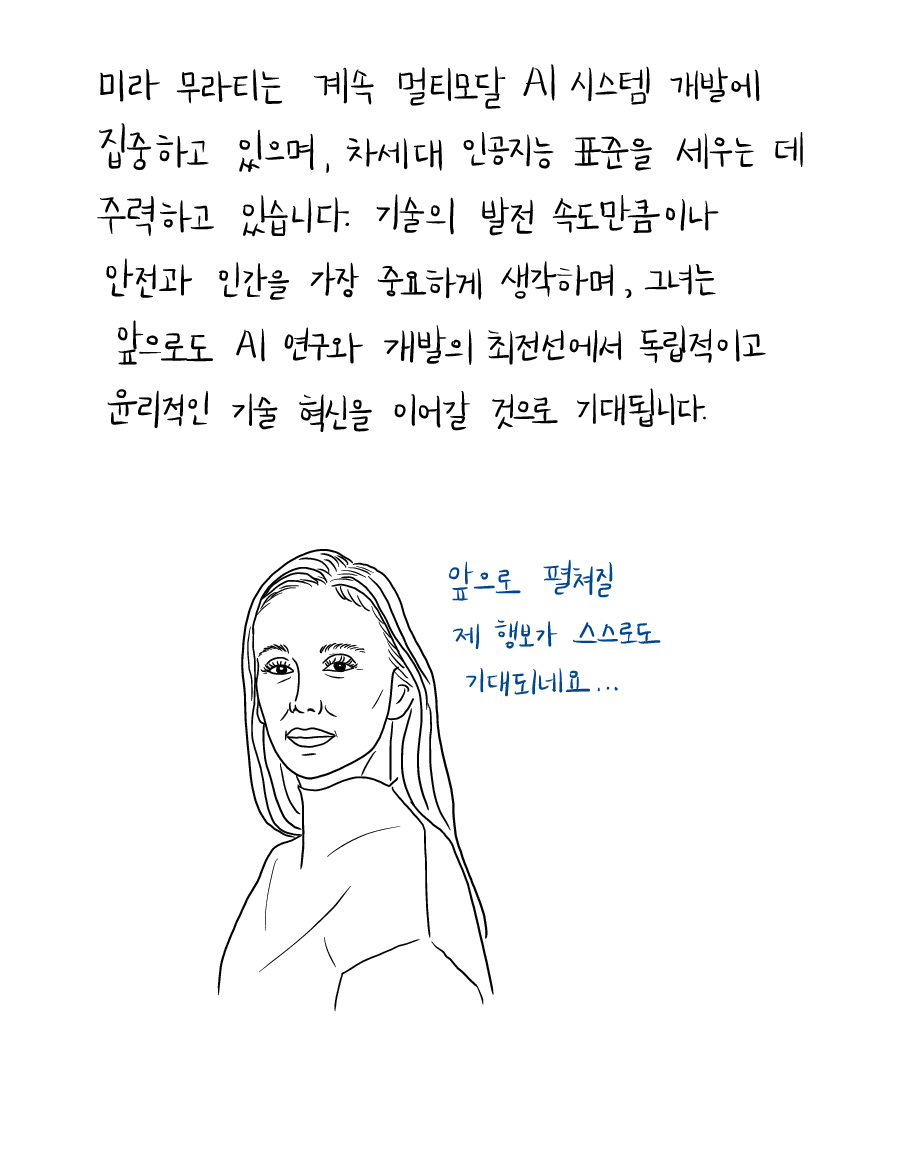 미라 무라티는 계속 멀티모달 AI 시스템 개발에
집중하고 있으며, 차세대 인공지능 표준을 세우는 데
주력하고 있습니다. 기술의 발전 속도만큼이나
안전과 인간을 가장 중요하게 생각하며, 그녀는
앞으로도 AI 연구와 개발의 최전선에서 독립적이고
윤리적인 기술 혁신을 이어갈 것으로 기대됩니다.
앞으로 펼쳐질
제 행보가 스스로도
기대되네요...